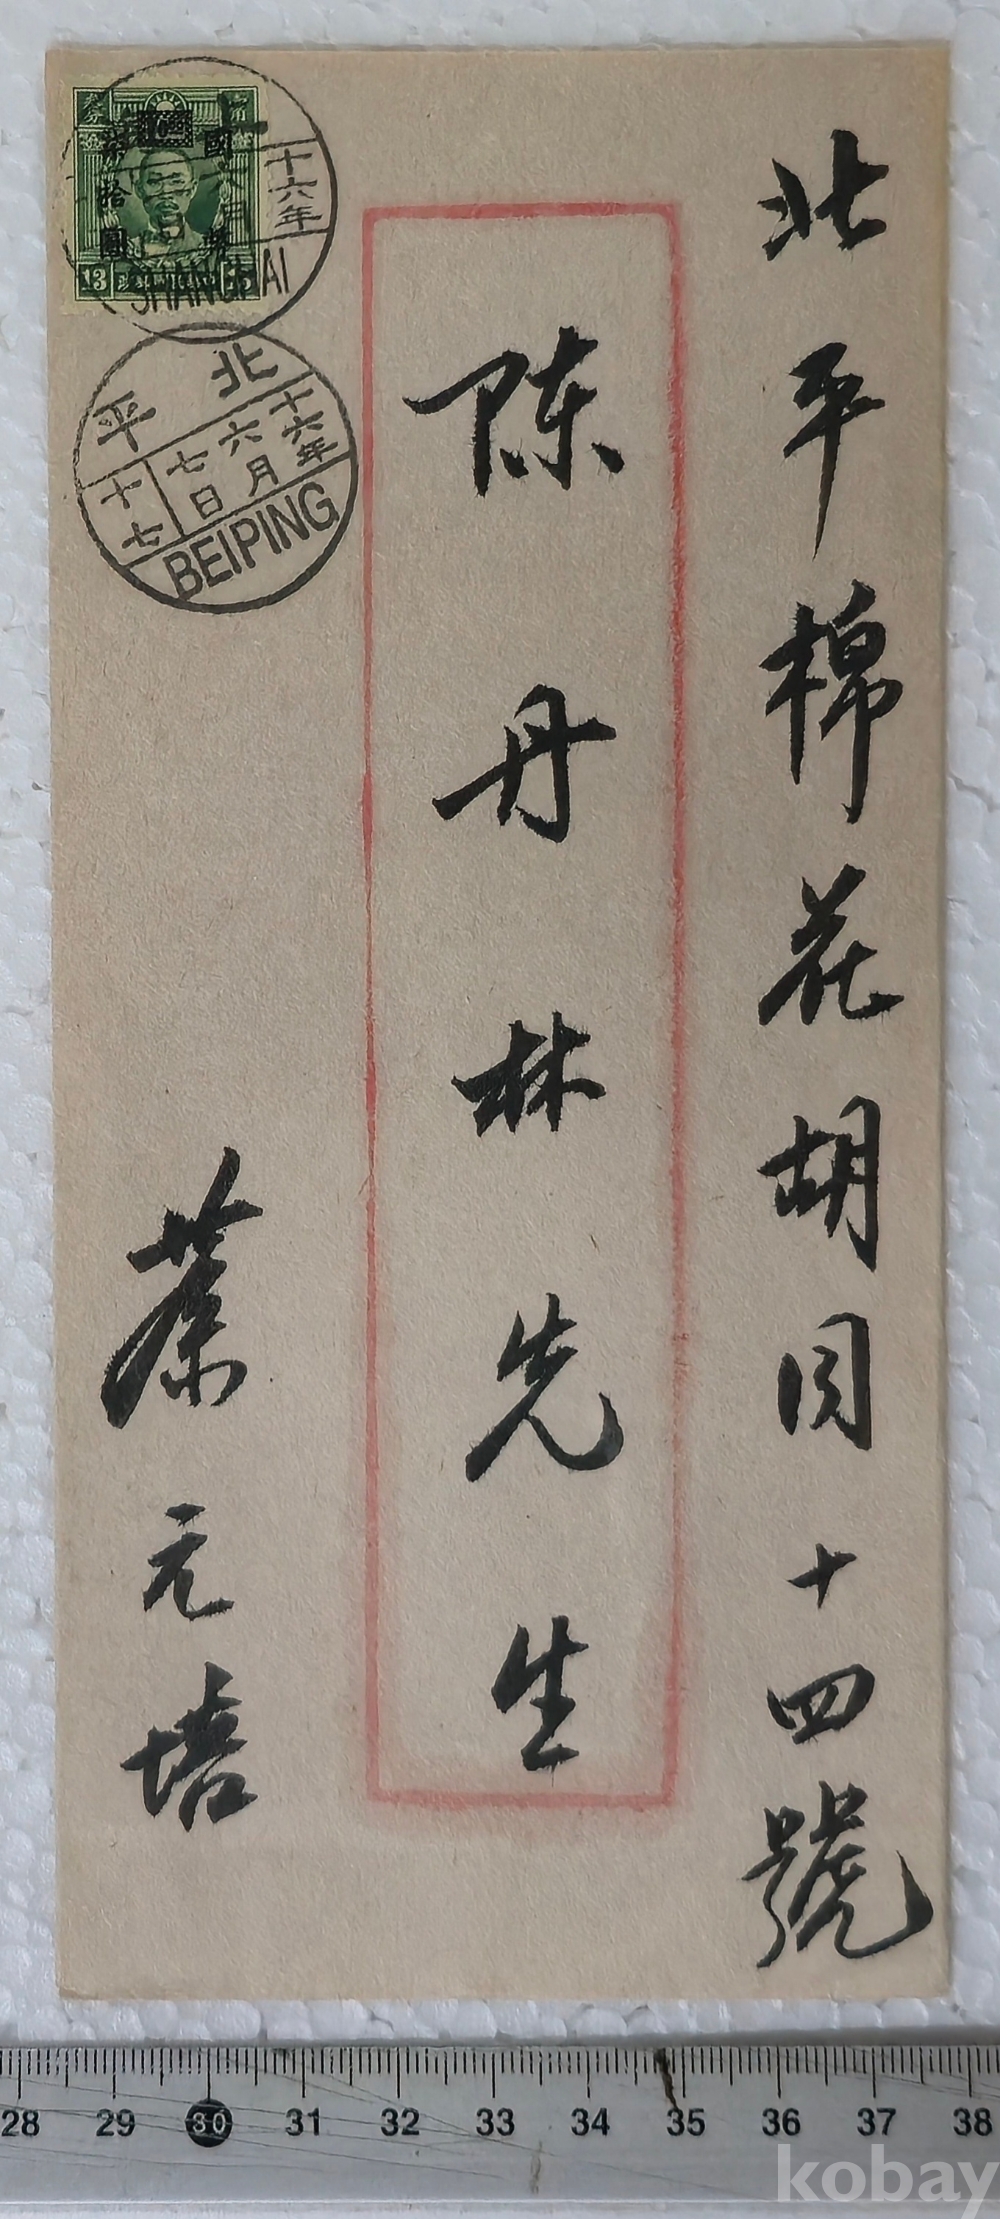 北平棉花胡同十四號
陈丹林先生
蔡元培
上
十六年
六月
SHANGHAI
國幣
拾圓
13
北平
十六年
六月
七日
十七
BEIPING
28 29 30 31 32 33 34 35 36 37 38
kobay